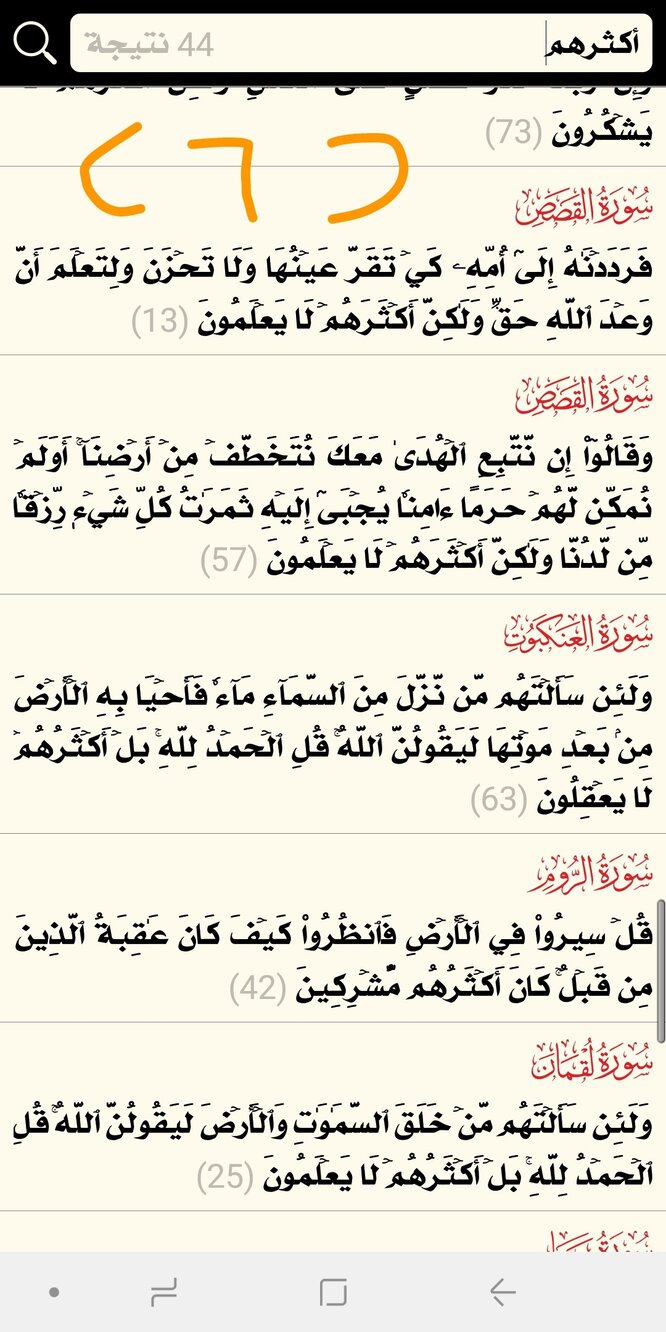 أكثرهم 44 نتيجة
يَشْكُرُونَ (73)
سُورَةُ القَصَصِ
فَرَدَدْنَٰهُ إِلَىٰٓ أُمِّهِۦ كَيْ تَقَرَّ عَيْنُهَا وَلَا تَحْزَنَ وَلِتَعْلَمَ أَنَّ
وَعْدَ ٱللَّهِ حَقٌّ وَلَٰكِنَّ أَكْثَرَهُمْ لَا يَعْلَمُونَ (13)
سُورَةُ القَصَصِ
وَقَالُوٓا۟ إِن نَّتَّبِعِ ٱلْهُدَىٰ مَعَكَ نُتَخَطَّفْ مِنْ أَرْضِنَآ ۚ أَوَلَمْ
نُمَكِّن لَّهُمْ حَرَمًا ءَامِنًا يُجْبَىٰٓ إِلَيْهِ ثَمَرَٰتُ كُلِّ شَىْءٍ رِّزْقًا
مِّن لَّدُنَّا وَلَٰكِنَّ أَكْثَرَهُمْ لَا يَعْلَمُونَ (57)
سُورَةُ العَنكَبُوتِ
وَلَئِن سَأَلْتَهُم مَّن نَّزَّلَ مِنَ ٱلسَّمَآءِ مَآءً فَأَحْيَا بِهِ ٱلْأَرْضَ
مِنۢ بَعْدِ مَوْتِهَا لَيَقُولُنَّ ٱللَّهُ ۚ قُلِ ٱلْحَمْدُ لِلَّهِ ۚ بَلْ أَكْثَرُهُمْ
لَا يَعْقِلُونَ (63)
سُورَةُ الرُّومِ
قُلْ سِيرُوا۟ فِي ٱلْأَرْضِ فَٱنظُرُوا۟ كَيْفَ كَانَ عَٰقِبَةُ ٱلَّذِينَ
مِن قَبْلُ ۚ كَانَ أَكْثَرُهُم مُّشْرِكِينَ (42)
سُورَةُ لُقْمَانَ
وَلَئِن سَأَلْتَهُم مَّنْ خَلَقَ ٱلسَّمَٰوَٰتِ وَٱلْأَرْضَ لَيَقُولُنَّ ٱللَّهُ ۚ قُلِ
ٱلْحَمْدُ لِلَّهِ ۚ بَلْ أَكْثَرُهُمْ لَا يَعْلَمُونَ (25)